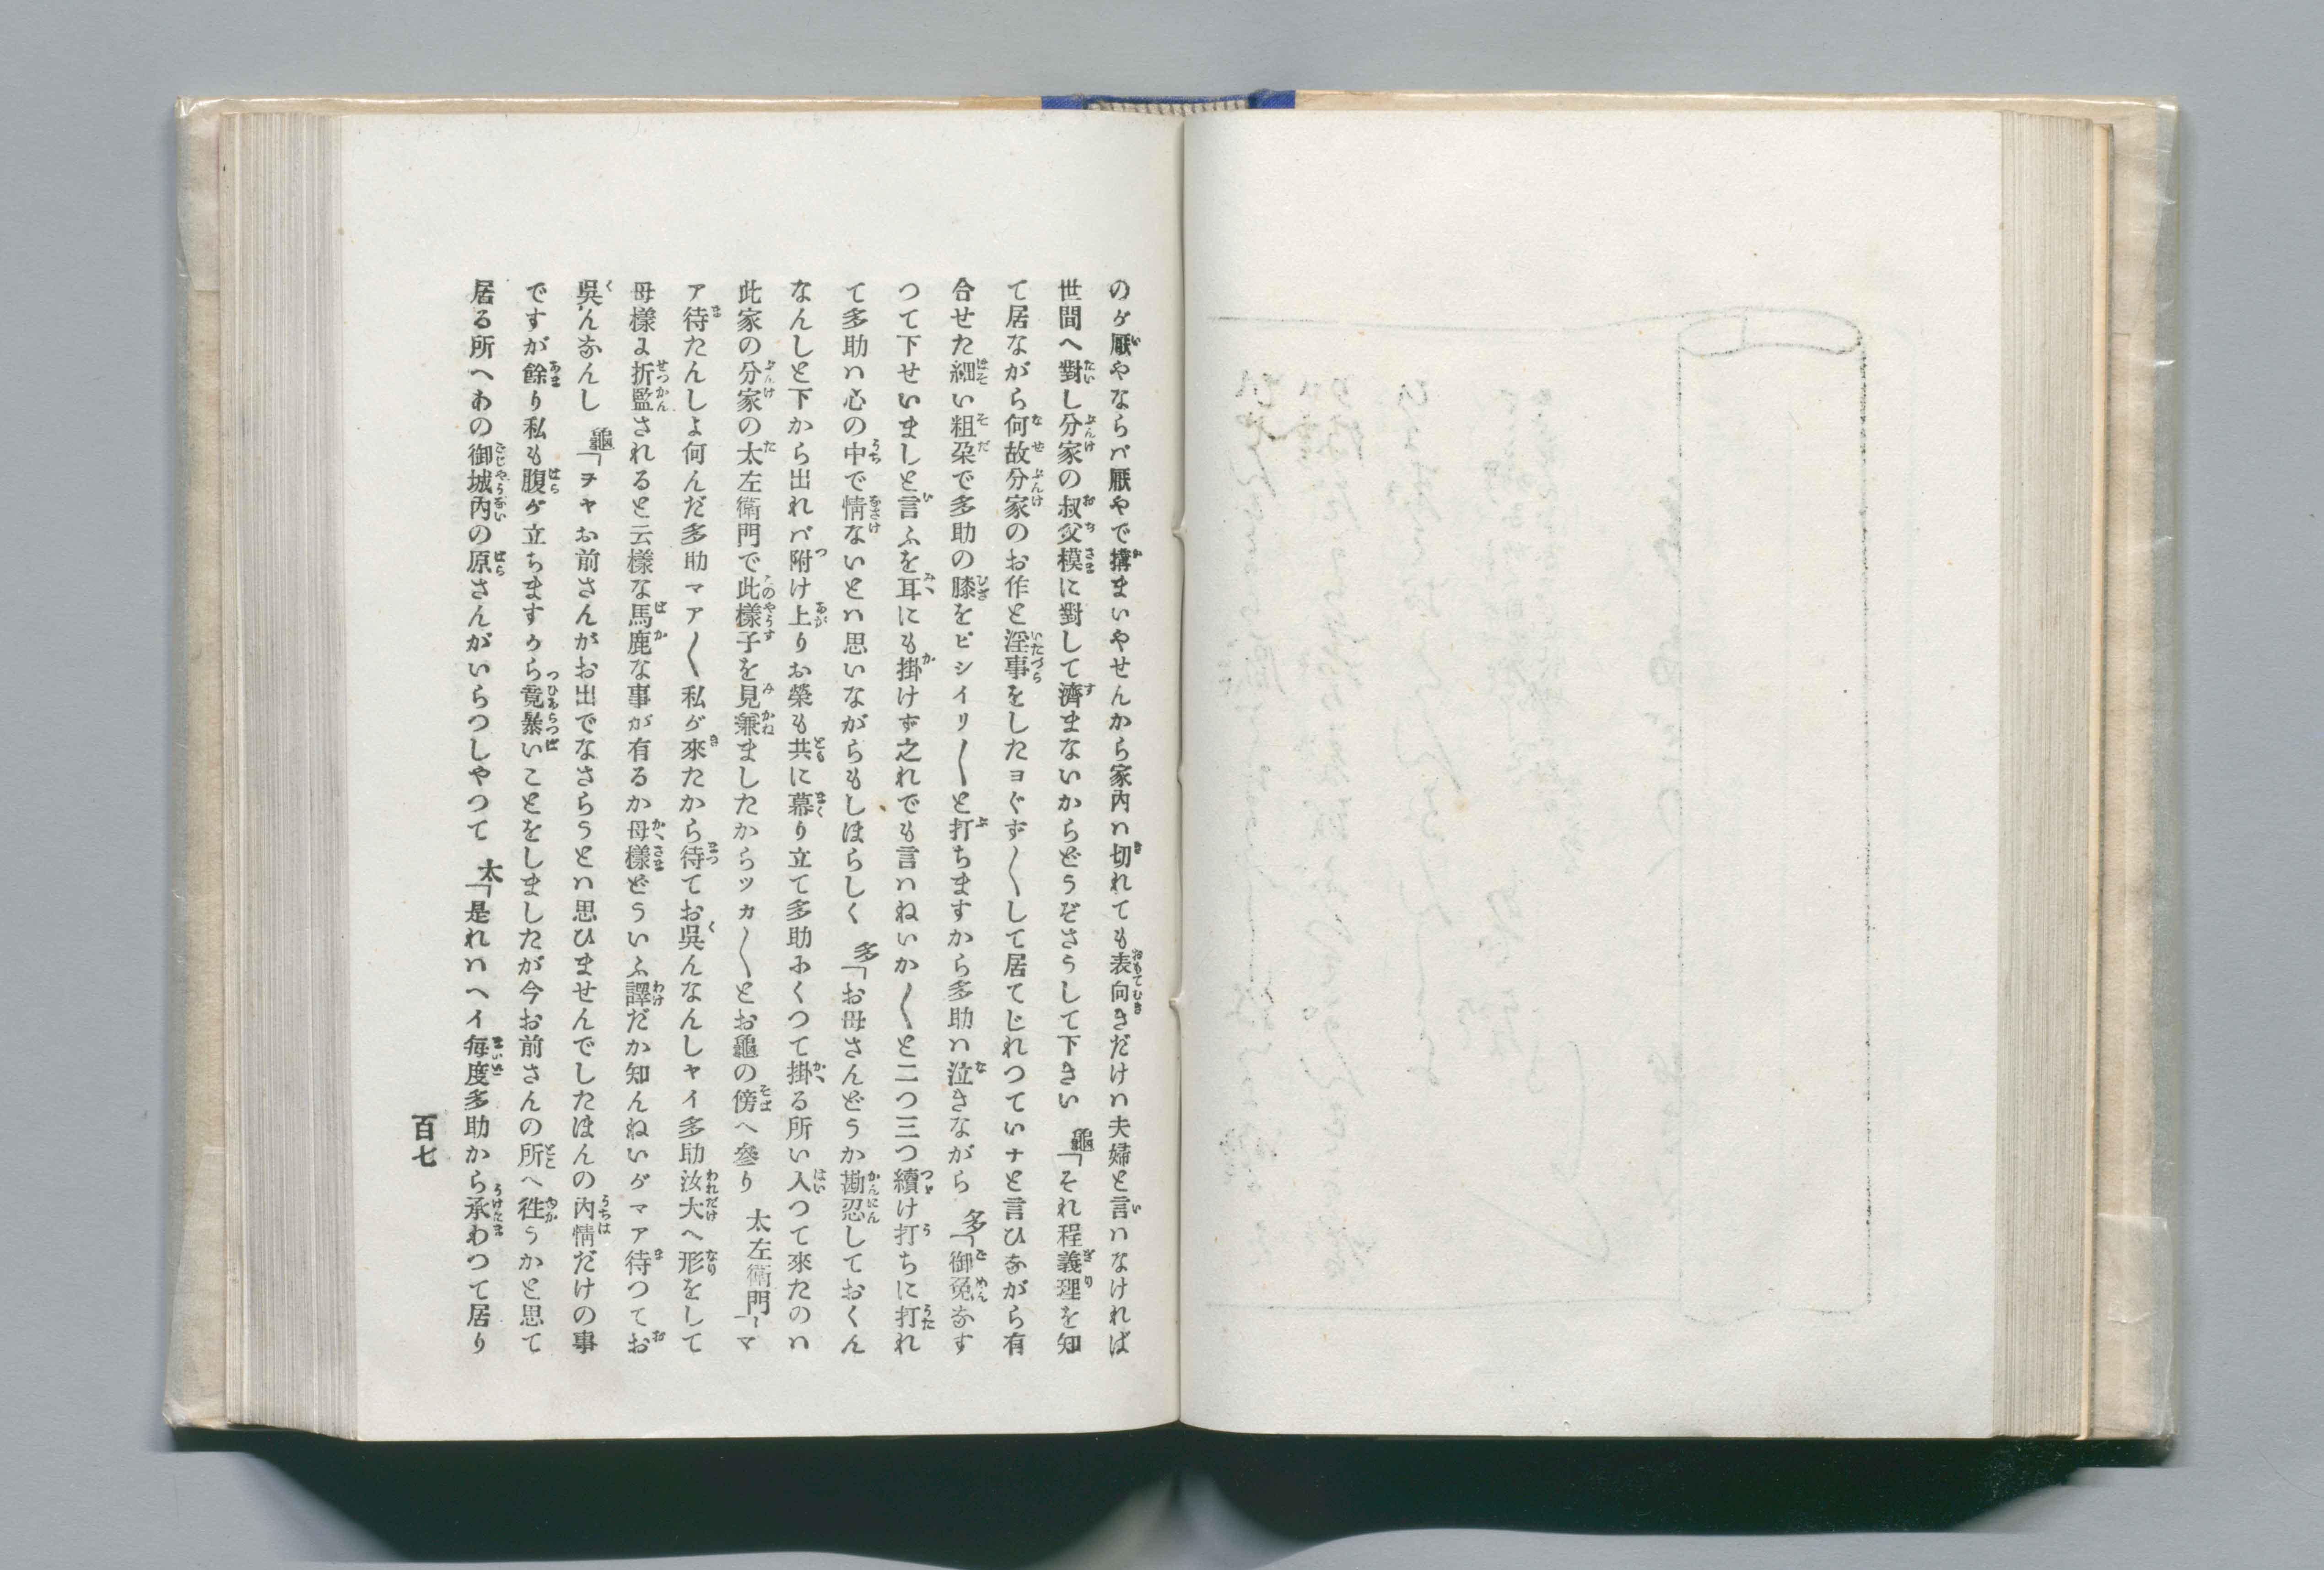 のゲ厭やならバ厭やで搆まいやせんから家内ハ切れても表向きだけハ夫婦と言ハなければ
世間へ對し分家の叔父様に對して濟まないからどうぞさうして下さい　龜「それ程義理を知
て居ながら何故分家のお作と淫事をしたヨぐず〳〵して居てじれつていナと言ひながら有
合せた細い粗朶で多助の膝をピシイリ〳〵と打ちますから多助ハ泣きながら　多「御免なす
つて下せいましと言ふを耳にも掛けず之れでも言ハねいか〳〵と二つ三つ續け打ちに打れ
て多助ハ心の中で情ないとハ思いながらもしほらしく　多「お母さんどうか勘忍しておくん
なんしと下から出れバ附け上りお榮も共に幕り立て多助おくつて掛る所い入つて來たのハ
此家の分家の太左衛門で此樣子を見兼ましたからツカ〳〵とお龜の傍へ參り　太左衛門「マ
ア待たんしよ何んだ多助マア〳〵私ゲ來たから待てお呉んなんしヤイ多助汝大へ形をして
母樣よ折監されると云樣な馬鹿な事が有るか母樣どういふ譯だか知んねいゲマア待つてお
呉んなんし　龜「ヲヤお前さんがお出でなさらうとハ思ひませんでしたほんの内情だけの事
ですが餘り私も腹ゲ立ちますから竟暴いことをしましたが今お前さんの所へ徃うかと思て
居る所へあの御城内の原さんがいらつしやつて　太「是れハヘイ毎度多助から承わつて居り
百七